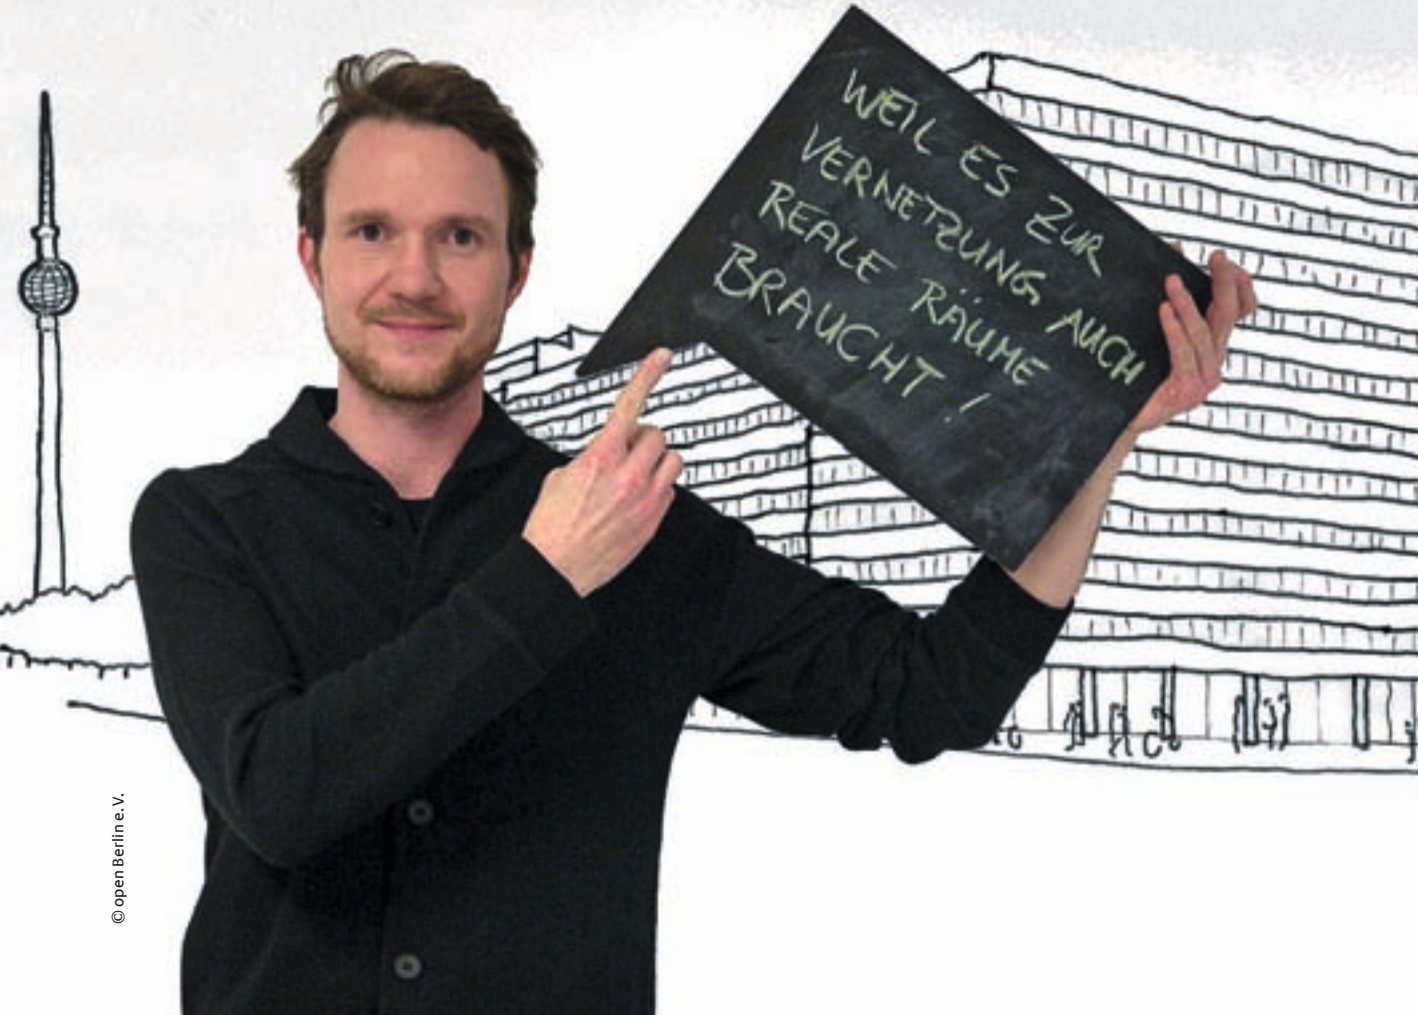 WEIL ES ZUR
VERNETZUNG AUCH
REALE RÄUME
BRAUCHT!
© open Berlin e. V.